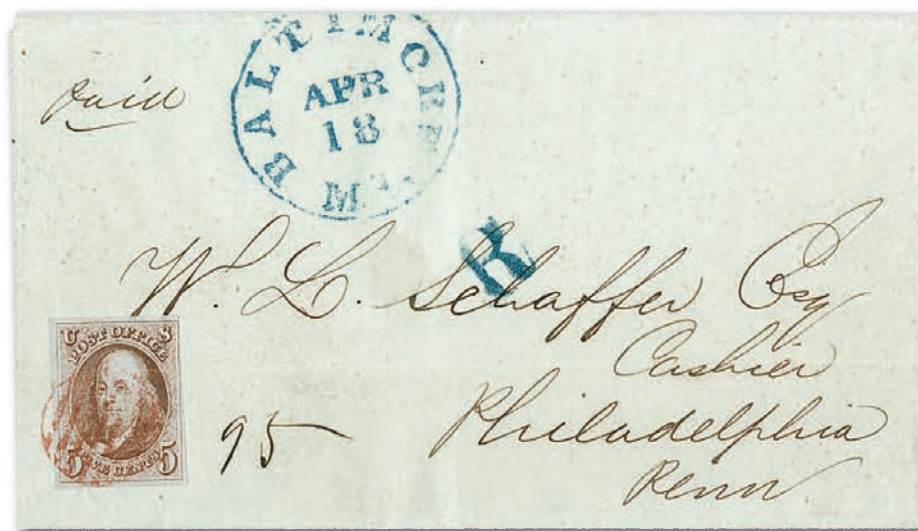 BALTIMORE Md.
APR
18
paid
R
W. L. Schaffer Esq
Cashier
Philadelphia
Penn
95
U S
POST OFFICE
FIVE CENTS
5 5